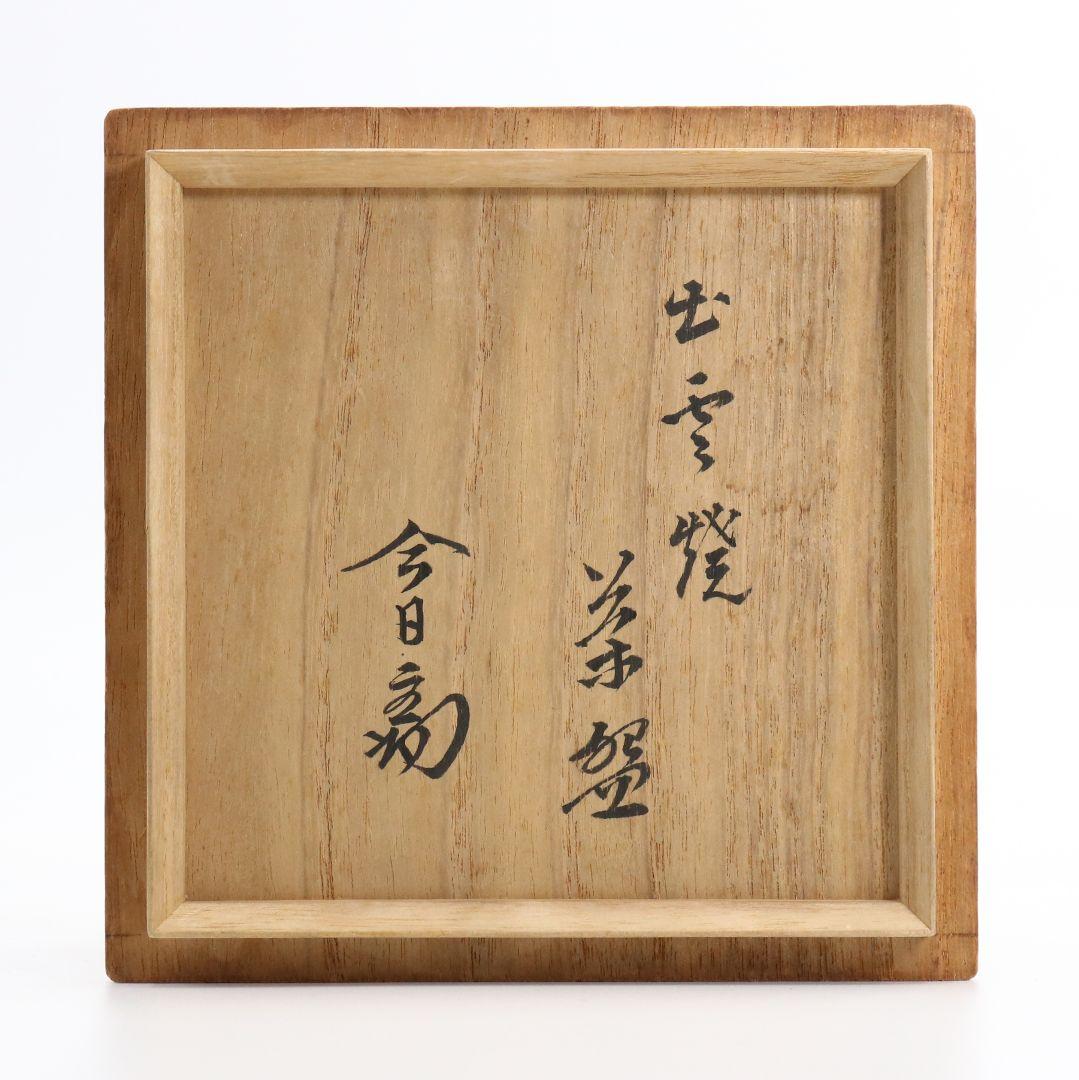 出雲焼
茶盌
今日庵